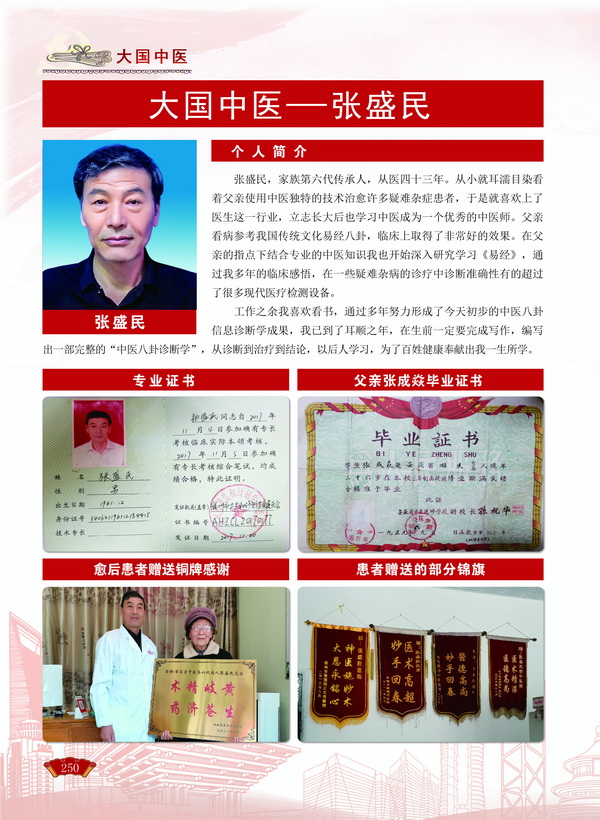 大国中医
大国中医——张盛民
张盛民
个人简介
张盛民，家族第六代传承人，从医四十三年。从小就耳濡目染看
着父亲使用中医独特的技术治愈许多疑难杂症患者，于是就喜欢上了
医生这一行业，立志长大后也学习中医成为一个优秀的中医师。父亲
看病参考我国传统文化易经八卦，临床上取得了非常好的效果。在父
亲的指点下结合专业的中医知识我也开始深入研究学习《易经》，通
过我多年的临床感悟，在一些疑难杂病的诊疗中诊断准确性有的超过
了很多现代医疗检测设备。
工作之余我喜欢看书，通过多年努力形成了今天初步的中医八卦
信息诊断学成果，我已到了耳顺之年，在生前一定要完成写作，编写
出一部完整的“中医八卦诊断学”，从诊断到治疗到结论，以后人学习，为了百姓健康奉献出我一生所学。
专业证书
姓名 张盛民
性别 男
出生日期
身份证号
技术专长
张盛民同志自2017年
11月4日参加确有专长
考核临床实际本领考核。
2017年11月5日参加确
有专长考核综合笔试，均成
绩合格。特此证明。
发证机关(盖章)
证书编号
发证日期
父亲张成焱毕业证书
毕业証书
BI YE ZHENG SHU
此证
愈后患者赠送铜牌感谢
术精岐黄
药济苍生
患者赠送的部分锦旗
神医施妙术
大恩永铭心
医术高超
妙手回春
医德高尚
妙手回春
医术精湛
医德高尚
250